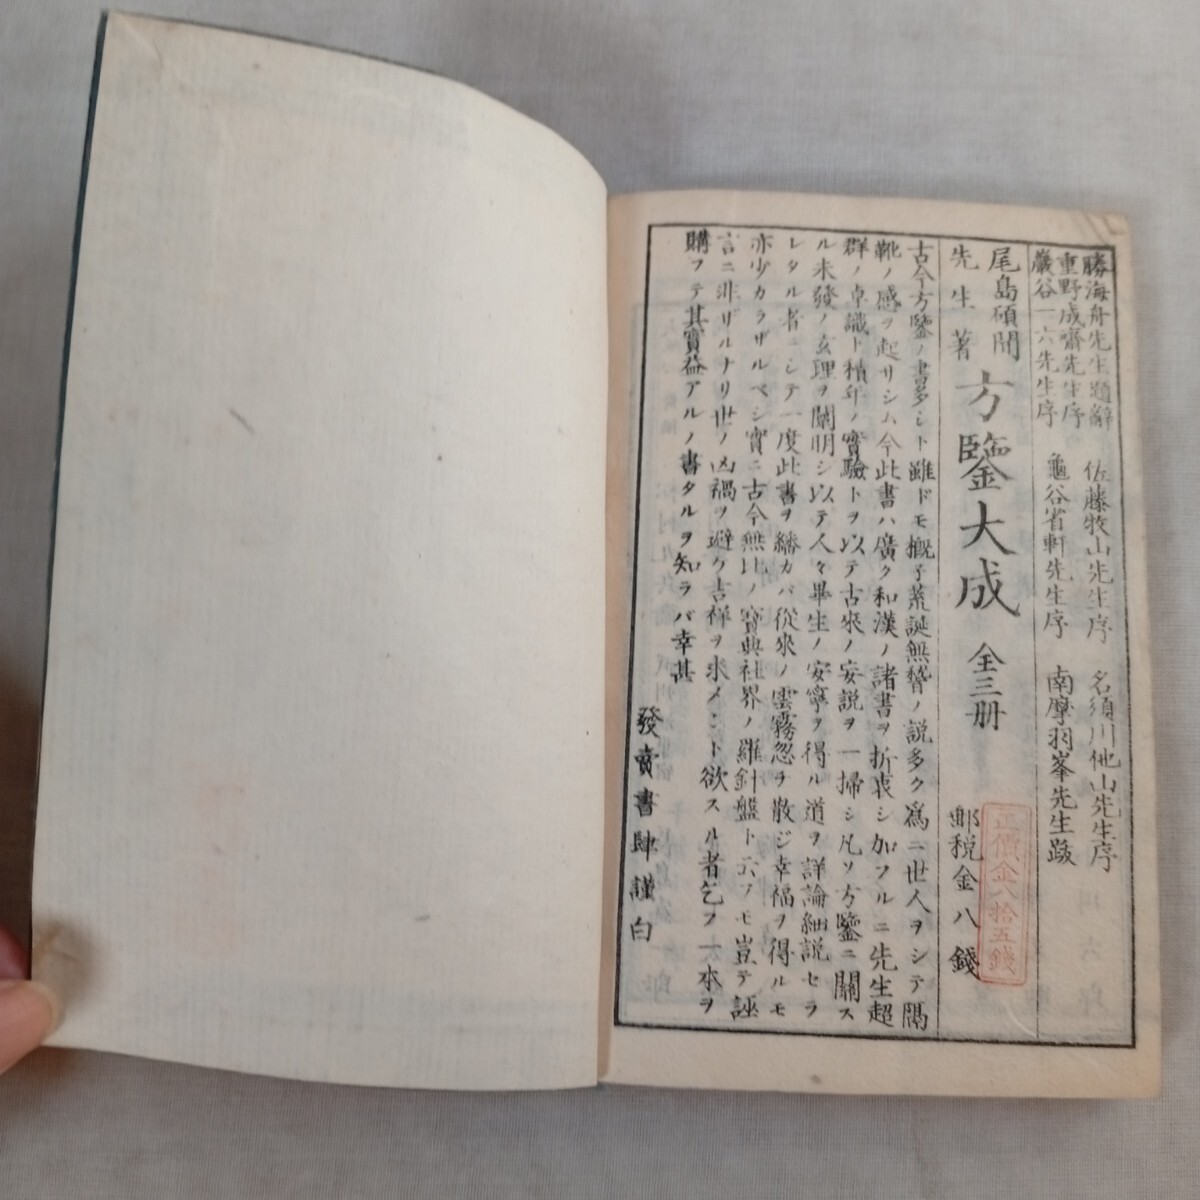 勝海舟先生題辭
重野成齋先生序
巖谷一六先生序
佐藤牧山先生序
龜谷省軒先生序
名須川他山先生序
南摩羽峯先生跋
尾島碩聞
先生著
方鑒大成
全三册
正價金八拾五錢
郵税金八錢
古今方鑒ノ書多シト雖ドモ概子荒誕無稽ノ説多ク爲ニ世人ヲシテ隔
靴ノ感ヲ起サシム今此書ハ廣ク和漢ノ諸書ヲ折衷シ加フルニ先生超
群ノ卓識ト積年ノ實驗トヲ以テ古來ノ妄説ヲ一掃シ凡ソ方鑒ニ關ス
ル未發ノ玄理ヲ闡明シ以テ人々畢生ノ安寧ヲ得ル道ヲ詳論細説セラ
レタル者ニシテ一度此書ヲ繙カバ從來ノ雲霧忽ヲ散ジ幸福ヲ得ルモ
亦少カラザルベシ實ニ古今無比ノ寶典社界ノ羅針盤ト云フモ豈テ誣
言ニ非ザルナリ世ノ凶禍ヲ避ケ吉祥ヲ求メント欲スル者乞フ一本ヲ
購フテ其實益アルノ書タルヲ知ラバ幸甚
發賣書肆謹白